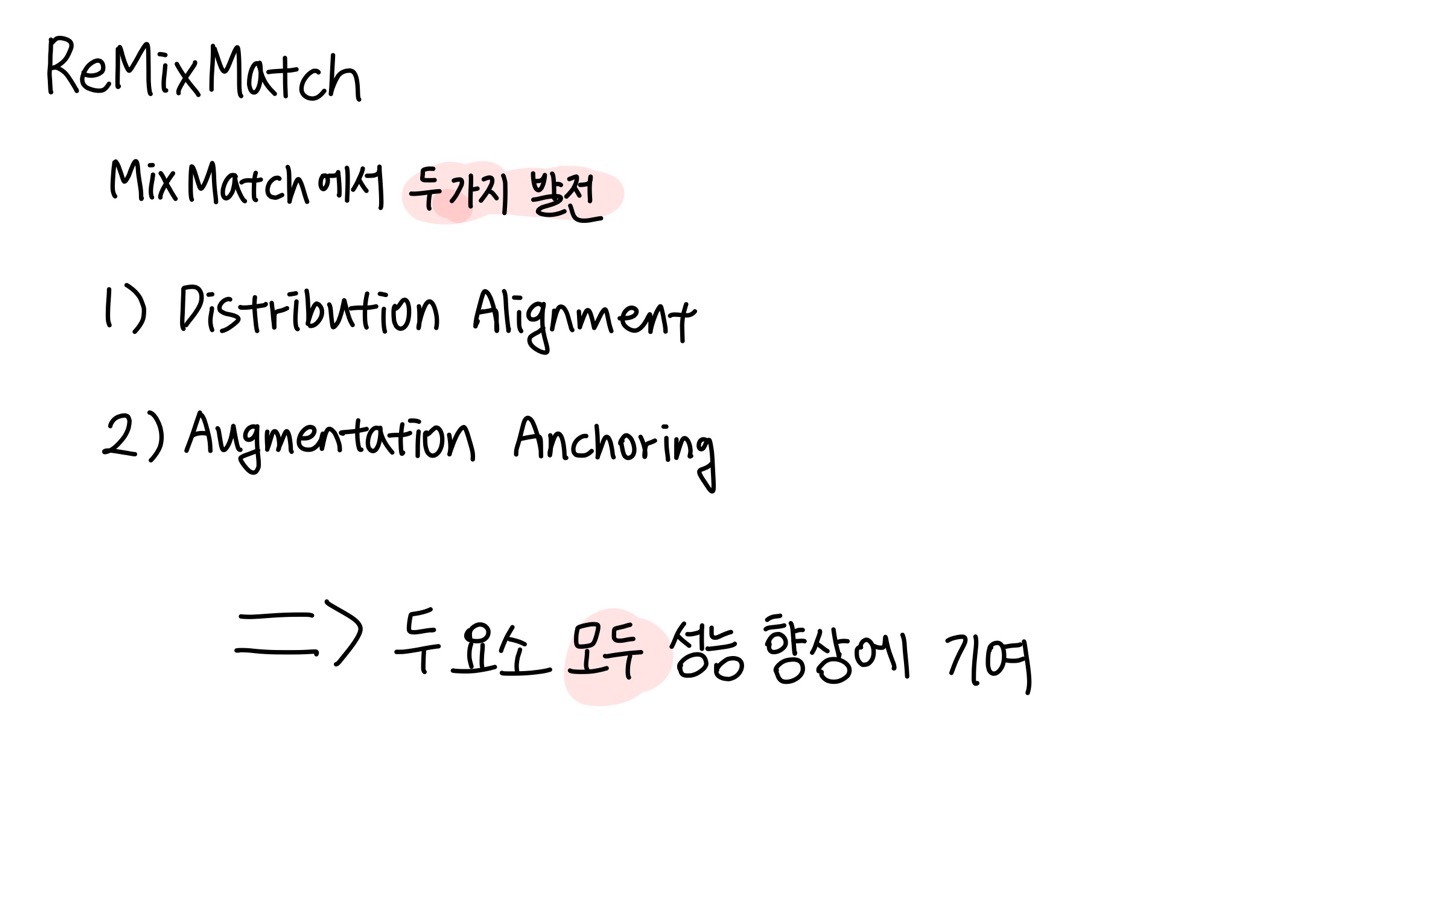 ReMixMatch
MixMatch에서 두가지 발전
1) Distribution Alignment
2) Augmentation Anchoring
=> 두 요소 모두 성능 향상에 기여